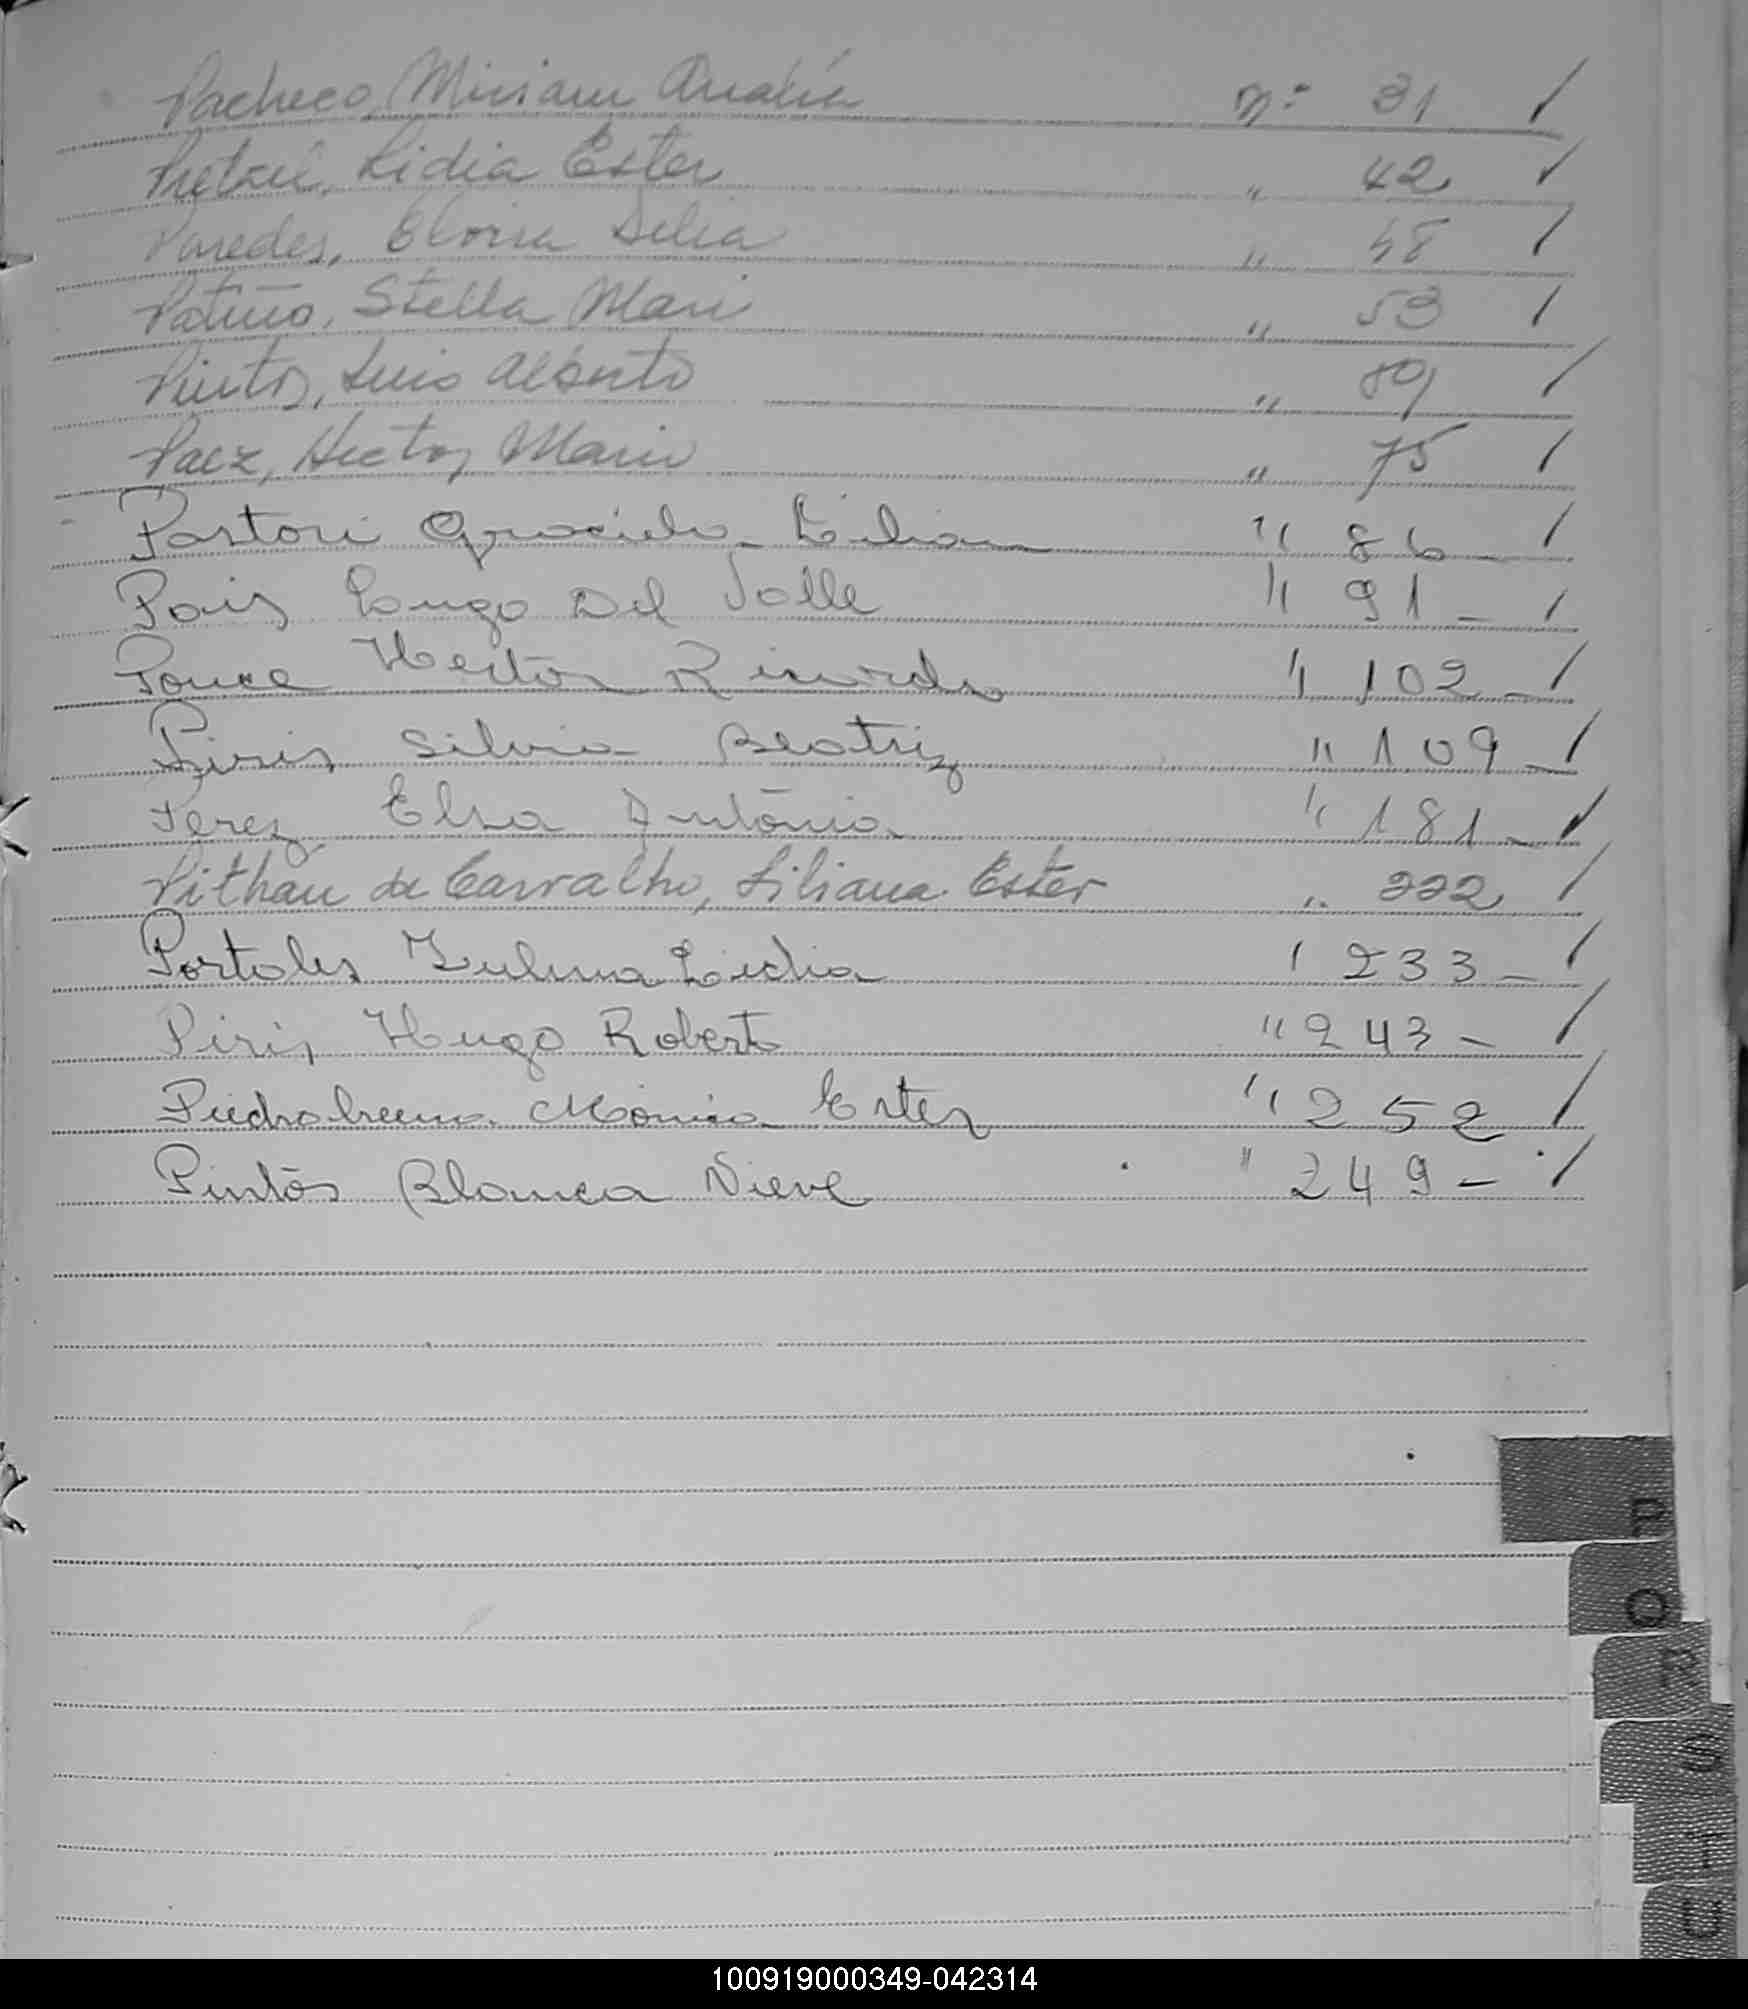 Pacheco, Miriam Analía nº 31 /
Lidia Ester " 42 /
Paredes, Eloisa Delia " 48 /
Patiño, Stella Mari " 53 /
Pintos, Luis Alberto " /
Paez, Hector Mario " 75 /
Pastori Graciela Lilian " 86 - /
Pais Del Valle " 91 - /
Ponce Hector Ricardo " 102 - /
Piris Silvia Beatriz " 109 - /
Perez Elsa Antónia " 181 - /
Pithan de Carvalho, Liliana Ester " 222 /
Portales Zulma Lidia " 233 - /
Piris Hugo Roberto " 243 - /
Piedrabuena Mónica Ester " 252 /
Pintós Blanca Nieve " 249 - /
P
Q
R
S
T
U
100919000349-042314